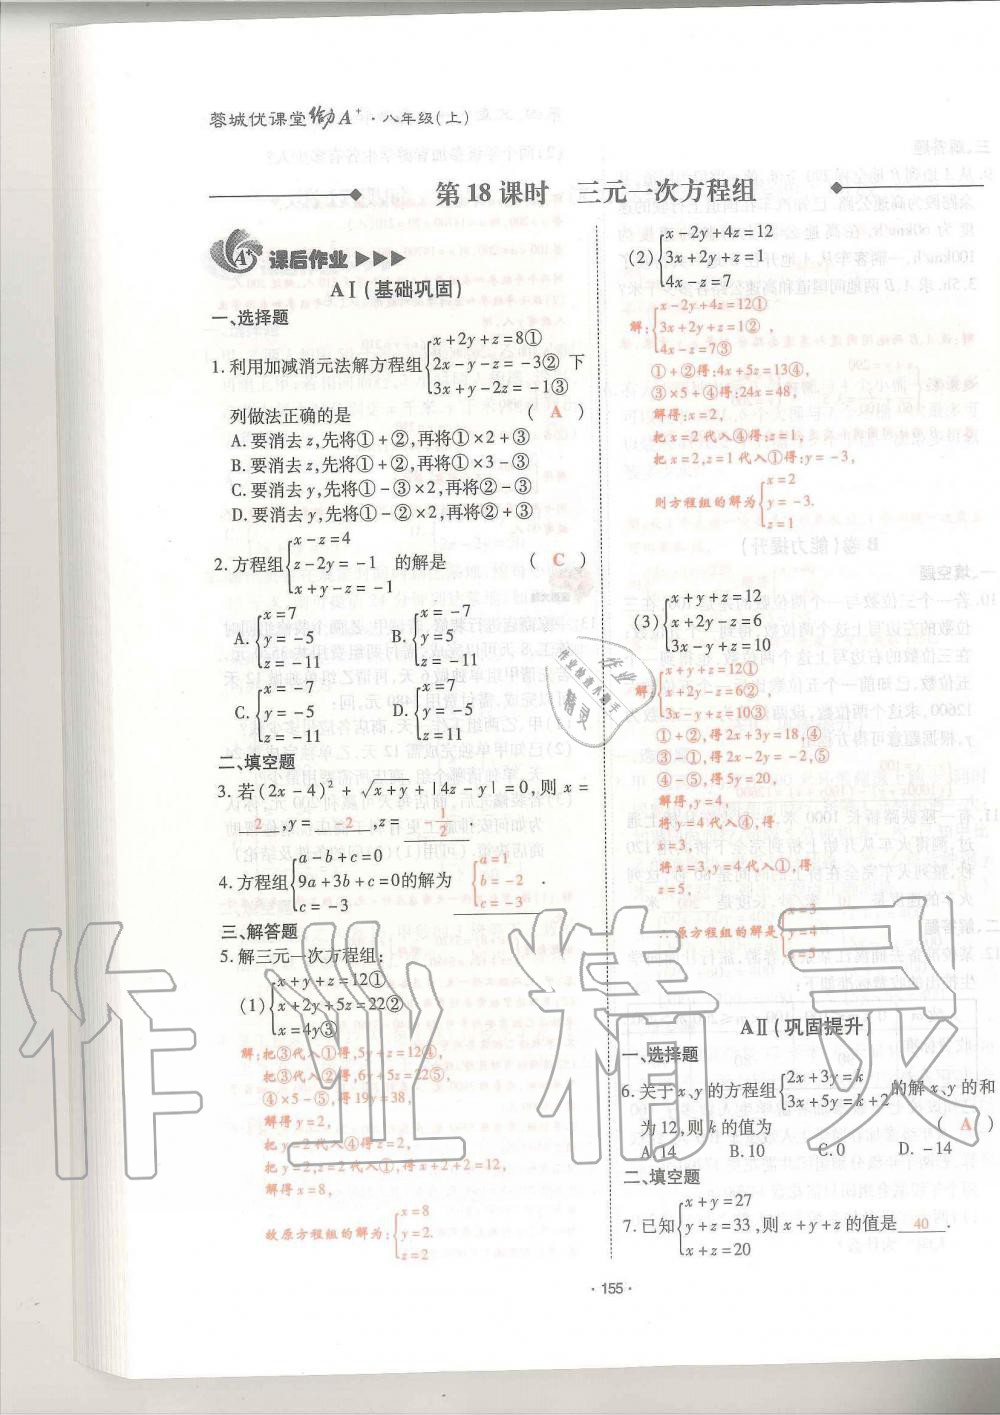 蓉城优课堂 给力A⁺·八年级(上)
第18课时 三元一次方程组
A⁺ 课后作业
AⅠ(基础巩固)
一、选择题
1.利用加减消元法解方程组{x+2y+z=8① 2x-y-z=-3② 3x+y-2z=-1③ 下
列做法正确的是 ( A )
A.要消去z,先将①+②,再将①×2+③
B.要消去z,先将①+②,再将①×3-③
C.要消去y,先将①-③×2,再将②-③
D.要消去y,先将①-②×2,再将②+③
2.方程组{x-z=4 z-2y=-1 x+y-z=-1 的解是 ( C )
A.{x=7 y=-5 z=-11 B.{x=-7 y=5 z=-11
C.{x=-7 y=-5 z=-11 D.{x=7 y=-5 z=-11
二、填空题
3.若(2x-4)²+√x+y+|4z-y|=0,则x=
2,y=-2,z=-1/2.
4.方程组{a-b+c=0 9a+3b+c=0 c=-3 的解为{a=1 b=-2 c=-3.
三、解答题
5.解三元一次方程组:
(1){x+y+z=12① x+2y+5z=22② x=4y③
解:把③代入①得,5y+z=12④,
把③代入②得,6y+5z=22⑤,
④×5-⑤,得19y=38,
解得y=2,
把y=2代入④得z=2,
把y=2,z=2代入①得,x+2+2=12,
解得x=8,
故原方程组的解为:{x=8 y=2. z=2
(2){x-2y+4z=12 3x+2y+z=1 4x-z=7
解:{x-2y+4z=12① 3x+2y+z=1②, 4x-z=7③
①+②得:4x+5z=13④,
③×5+④得:24x=48,
解得:x=2,
把x=2代入④得:z=1,
把x=2,z=1代入①得:y=-3,
则方程组的解为{x=2 y=-3. z=1
(3){x+y+z=12 x+2y-z=6 3x-y+z=10
解{x+y+z=12① x+2y-z=6②, 3x-y+z=10③
①+②,得2x+3y=18,④
③-①,得2x-2y=-2,⑤
④-⑤,得5y=20,
解得,y=4,
将y=4代入④,得
x=3,
将x=3,y=4代入①,得
z=5,
∴原方程组的解是{x=3 y=4 z=5
AⅡ(巩固提升)
一、选择题
6.关于x、y的方程组{2x+3y=k 3x+5y=k+2 的解x、y的和
为12,则k的值为 ( A )
A.14 B.10 C.0 D.-14
二、填空题
7.已知{x+y=27 y+z=33 x+z=20 ,则x+y+z的值是 40 .
·155·
作业精灵
作业检查小帮手
作业
精灵